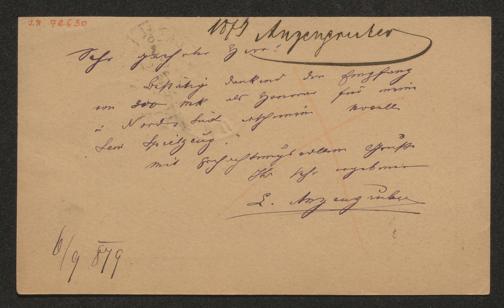 I.N. 72630
1879 Anzengruber
Sehr geehrter Herr!
Bestätige dankend den Empfang
von 300 Mk als Honorar für mein
in Nord u Süd Novelle
Spielzeug.
Mit hochachtungsvollem Gruße
Ihr sehr ergebener
L. Anzengruber
6/9 879